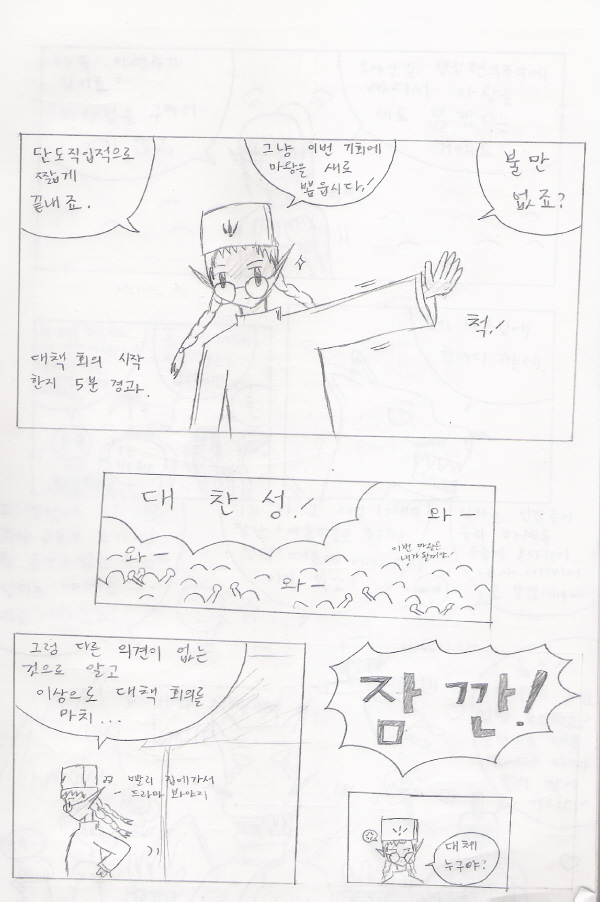 단도직입적으로
짧게
끝내죠.
그냥 이번 기회에
마왕을 새로
뽑읍시다!
불만
없죠?
척!
대책 회의 시작
한지 5분 경과.
대 찬 성!
와-
와-
이번 마왕은
내가 될꺼야!
와-
그럼 다른 의견이 없는
것으로 알고
이상으로 대책 회의를
마치...
빨리 집에가서
드라마 봐야지
잠깐!
대체
누구야?